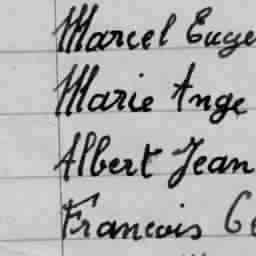 Marcel Euge
Marie Ange
Albert Jean
Francois Ce